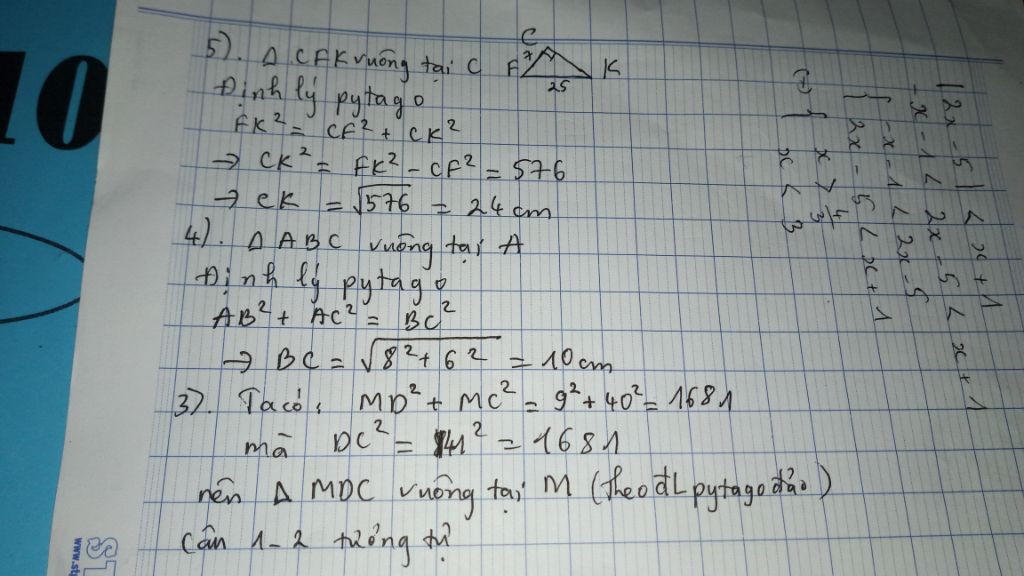 5). Δ CFK vuông tại C
C
7
F
K
25
Định lý pytago
FK² = CF² + CK²
→ CK² = FK² - CF² = 576
→ CK = √576 = 24 cm
4). Δ ABC vuông tại A
Định lý pytago
AB² + AC² = BC²
→ BC = √8² + 6² = 10 cm
3). Ta có: MD² + MC² = 9² + 40² = 1681
mà DC² = 41² = 1681
nên Δ MDC vuông tại M (theo đL pytago đảo)
Câu 1-2 tưởng tự
|2x - 5| < x + 1
-x - 1 < 2x - 5 < x + 1
{ -x - 1 < 2x - 5
2x - 5 < x + 1
{ x > 4/3
x < 3
10
ST